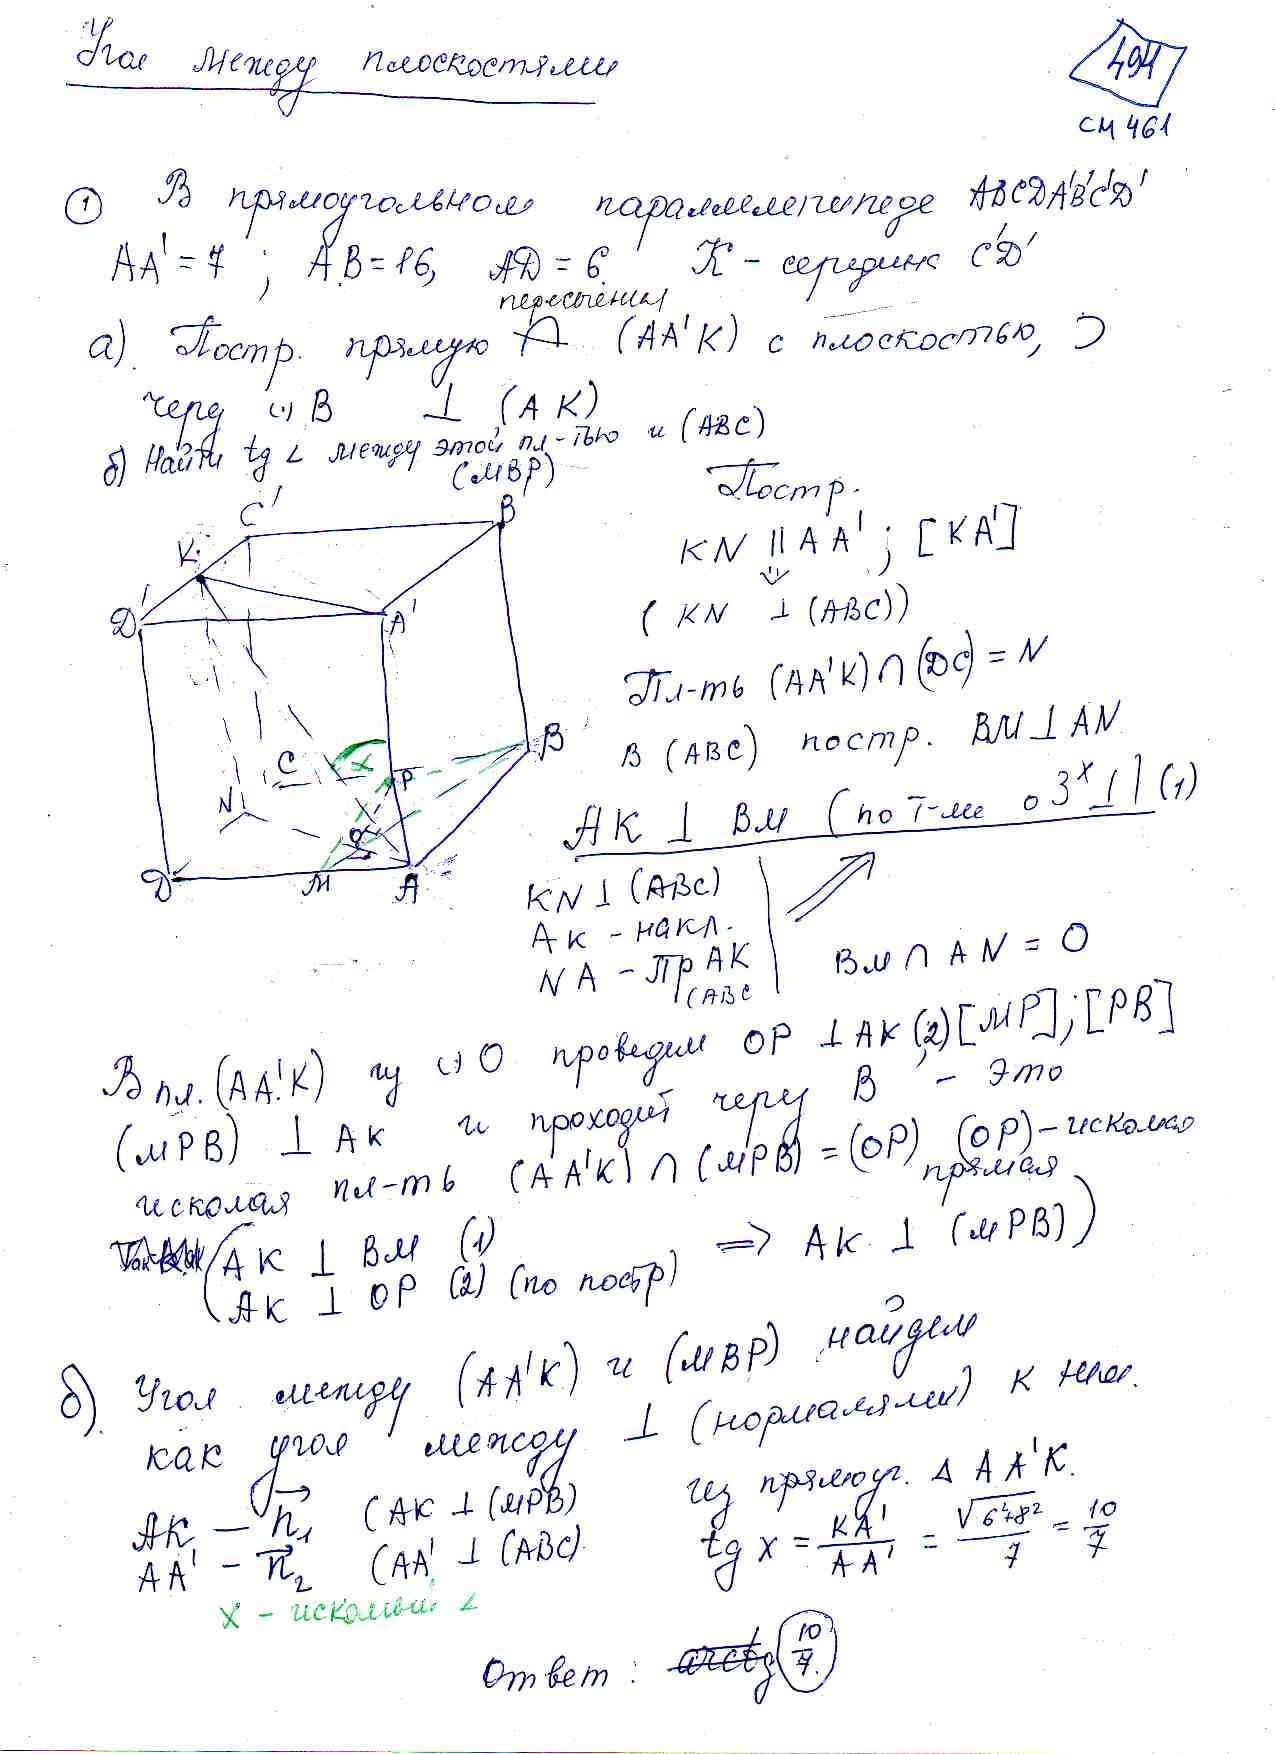 Угол между плоскостями
494
см 461
① В прямоугольном параллелепипеде ABCDA'B'C'D'
AA' = 7 ; AB = 16, AD = 6 K - середина C'D'
пересечения
а). Постр. прямую (AA'K) с плоскостью,
через (·) B ⊥ (AK)
б) Найти tg ∠ между этой пл-тью и (ABC)
(MBP)
Постр.
KN || AA' ; [KA']
( KN ⊥ (ABC))
Пл-ть (AA'K) ∩ (DC) = N
В (ABC) постр. BM ⊥ AN
AK ⊥ BM (по т-ме о 3х ⊥) (1)
C'
B
K
D'
A'
C
x
P
B
N
O
D
M
A
KN ⊥ (ABC)
AK - накл.
NA - пр AK
(ABC
BM ∩ AN = O
В пл. (AA'K) из (·) O проведем OP ⊥ AK (2) [MP]; [PB]
(MPB) ⊥ AK и проходит через B - это
искомая пл-ть (AA'K) ∩ (MPB) = (OP) (OP) - искомая
прямая
(AK ⊥ BM (1)
(AK ⊥ OP (2) (по постр) ⇒ AK ⊥ (MPB))
б). Угол между (AA'K) и (MBP) найдем
как угол между ⊥ (нормалями) к ним.
AK - n₁ (AK ⊥ (MPB)
AA' - n₂ (AA' ⊥ (ABC).
x - искомый ∠
из прямоуг. △ AA'K.
tg x = KA'/AA' = √6²+8²/7 = 10/7
Ответ : arctg 10/7.